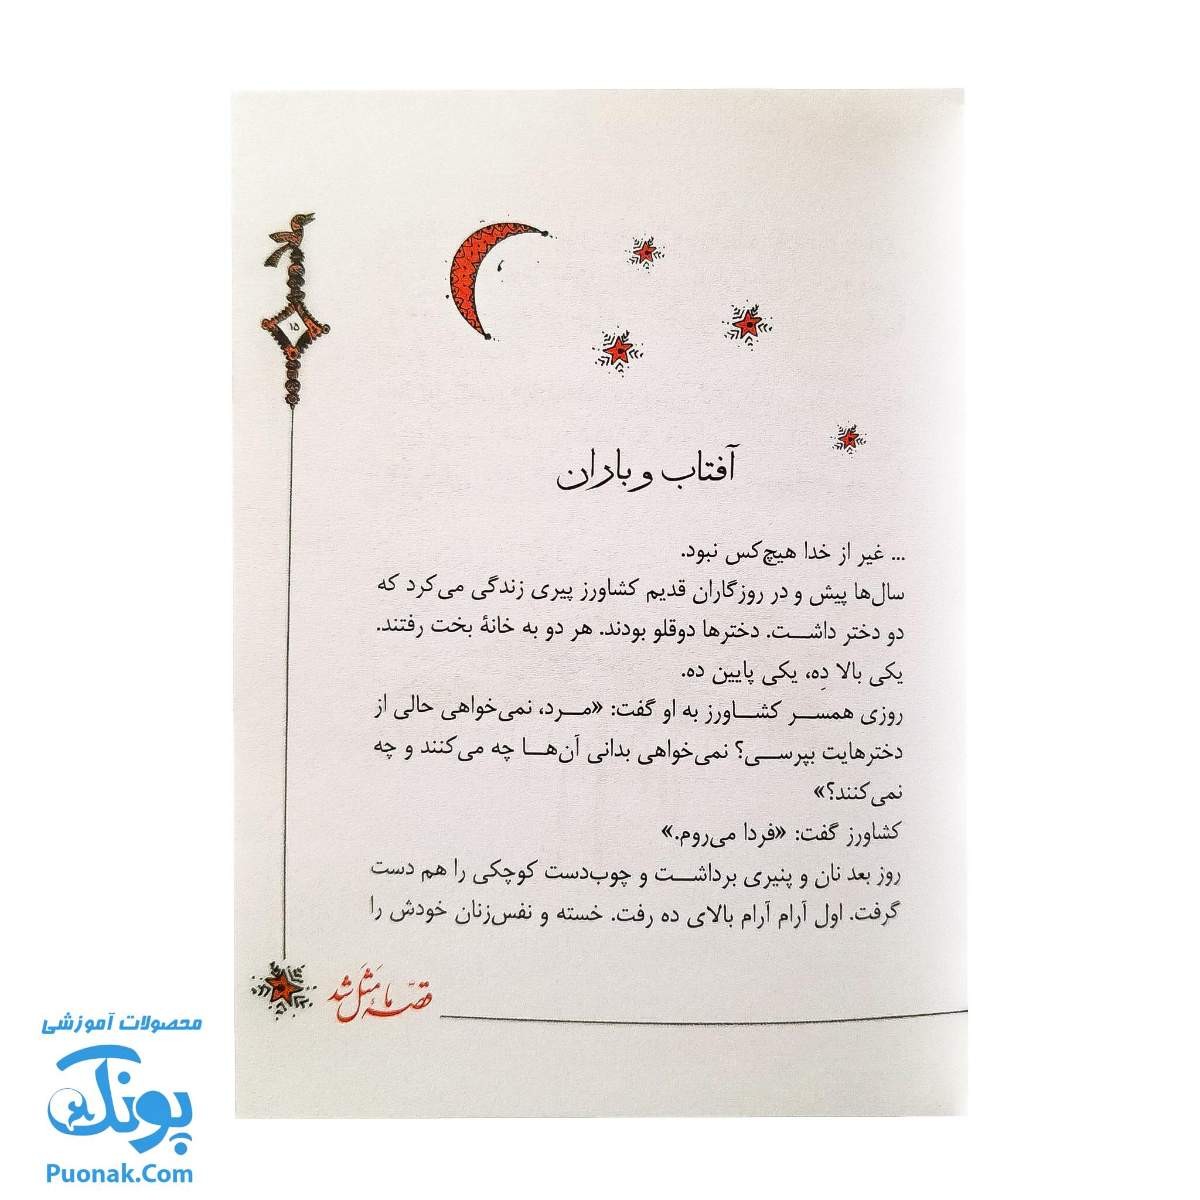 ۱۵
آفتاب و باران
... غیر از خدا هیچ‌کس نبود.
سال‌ها پیش و در روزگاران قدیم کشاورز پیری زندگی می‌کرد که
دو دختر داشت. دخترها دوقلو بودند. هر دو به خانهٔ بخت رفتند.
یکی بالا دِه، یکی پایین ده.
روزی همسر کشاورز به او گفت: «مرد، نمی‌خواهی حالی از
دخترهایت بپرسی؟ نمی‌خواهی بدانی آن‌ها چه می‌کنند و چه
نمی‌کنند؟»
کشاورز گفت: «فردا می‌روم.»
روز بعد نان و پنیری برداشت و چوب‌دست کوچکی را هم دست
گرفت. اول آرام آرام بالای ده رفت. خسته و نفس‌زنان خودش را
قصّه ما مَثَل شد
محصولات آموزشی
پونک
Puonak.Com